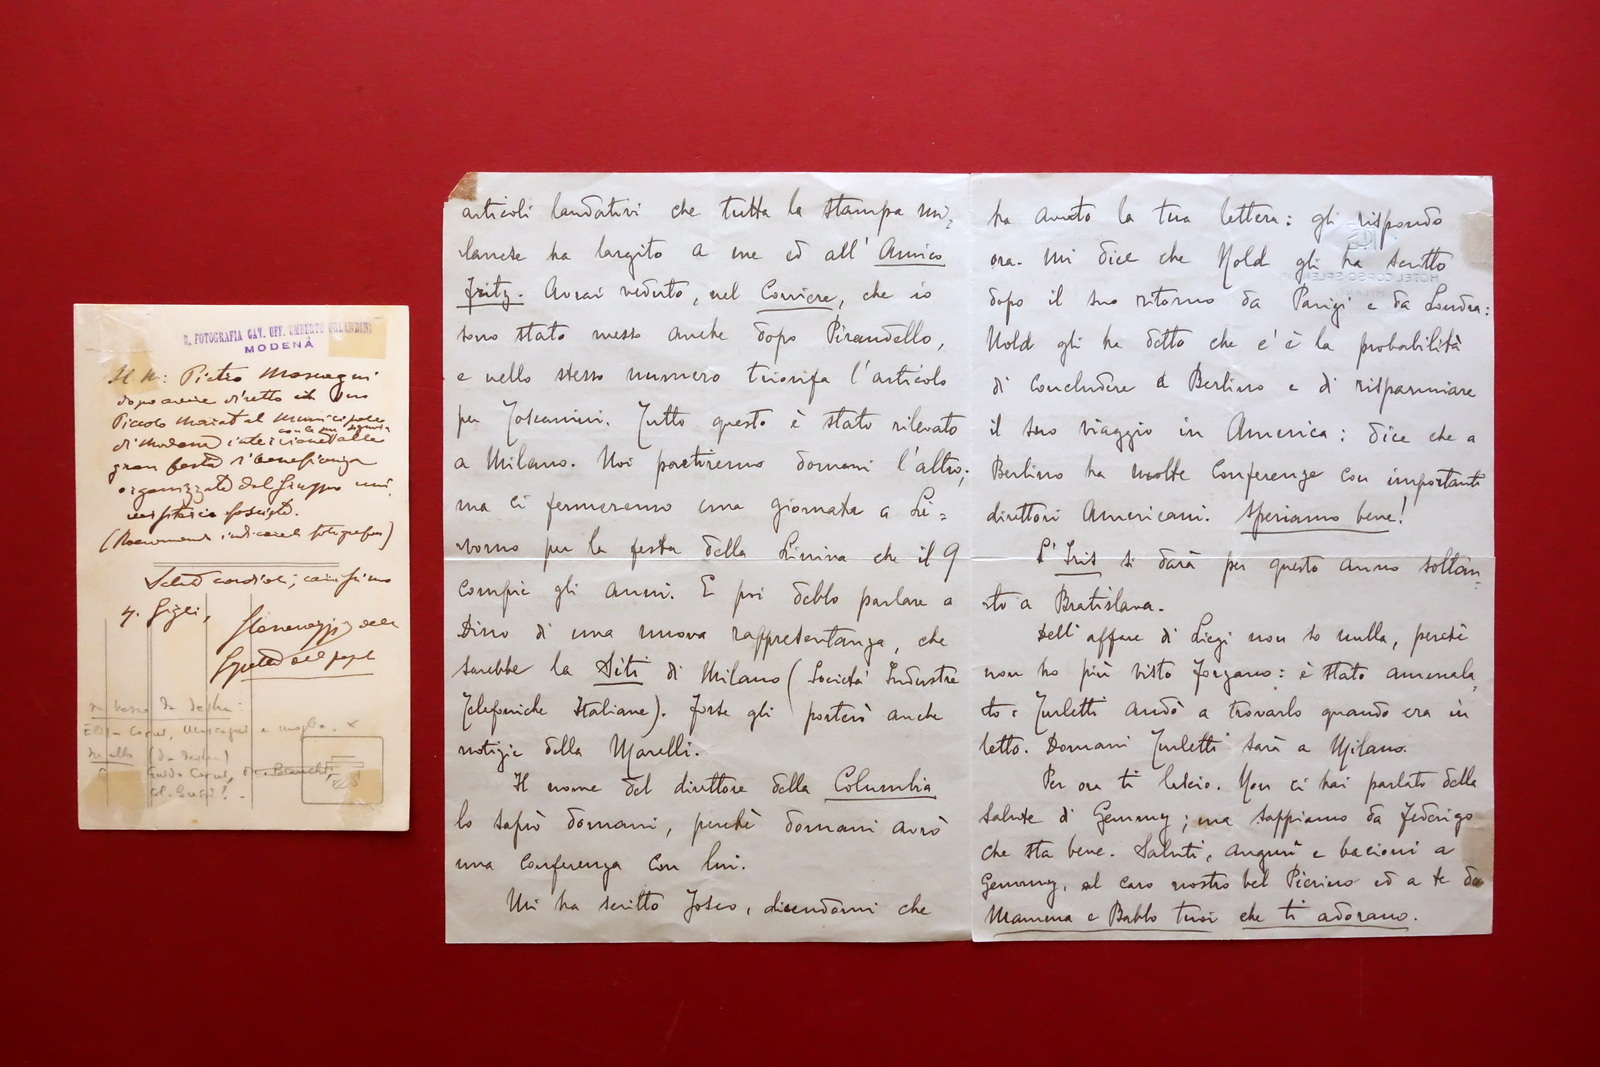 R. FOTOGRAFIA CAV. UFF. UMBERTO ORLANDINI
MODENA
Pietro Mascagni
dopo avere diretto il suo
Piccolo Marat al Municipale
di Modena interviene alla
gran festa di beneficenza
organizzata dal Gruppo uni
versitario fascista.
(Raccomando indicare il fotografo)
Saluti cordiali, carissimo
Gigli,
da basso da destra:
Mascagni e moglie.
da alto (da destra)
Guido
articoli laudativi che tutta la stampa mi=
lanese ha largito a me ed all'Amico
Fritz. Avrai veduto, nel Corriere, che io
sono stato messo anche dopo Pirandello,
e nello stesso numero trionfa l'articolo
per Toscanini. Tutto questo è stato rilevato
a Milano. Noi partiremo domani l'altro;
ma ci fermeremo una giornata a Li=
vorno per la festa della Limina che il 9
compie gli anni. E poi debbo parlare a
Dino di una nuova rappresentanza, che
sarebbe la Siti di Milano (Società Industrie
Telefoniche Italiane). Forse gli porterò anche
notizie della Marelli.
Il nome del direttore della Columbia
lo saprò domani, perchè domani avrò
una conferenza con lui.
Mi ha scritto Tosco, dicendomi che
HOTEL CORSO SPLENDID
ha avuto la tua lettera: gli rispondo
ora. Mi dice che Nold gli ha scritto
dopo il suo ritorno da Parigi e da Londra:
Nold gli ha detto che c'è la probabilità
di concludere a Berlino e di risparmiare
il suo viaggio in America: dice che a
Berlino ha molte conferenze con importanti
direttori Americani. Speriamo bene!
L'Iris si darà per questo anno soltan=
to a Bratislava.
Dell'affare di Liegi non so nulla, perchè
non ho più visto Forzano: è stato ammala
to: Zurletti andò a trovarlo quando era in
letto. Domani Zurletti sarà a Milano.
Per ora ti lascio. Non ci hai parlato della
salute di Gemmy; ma sappiamo da Federigo
che sta bene. Saluti, auguri e bacioni a
Gemmy, al caro nostro bel Pierino ed a te da
Mamma e Babbo tuoi che ti adorano.